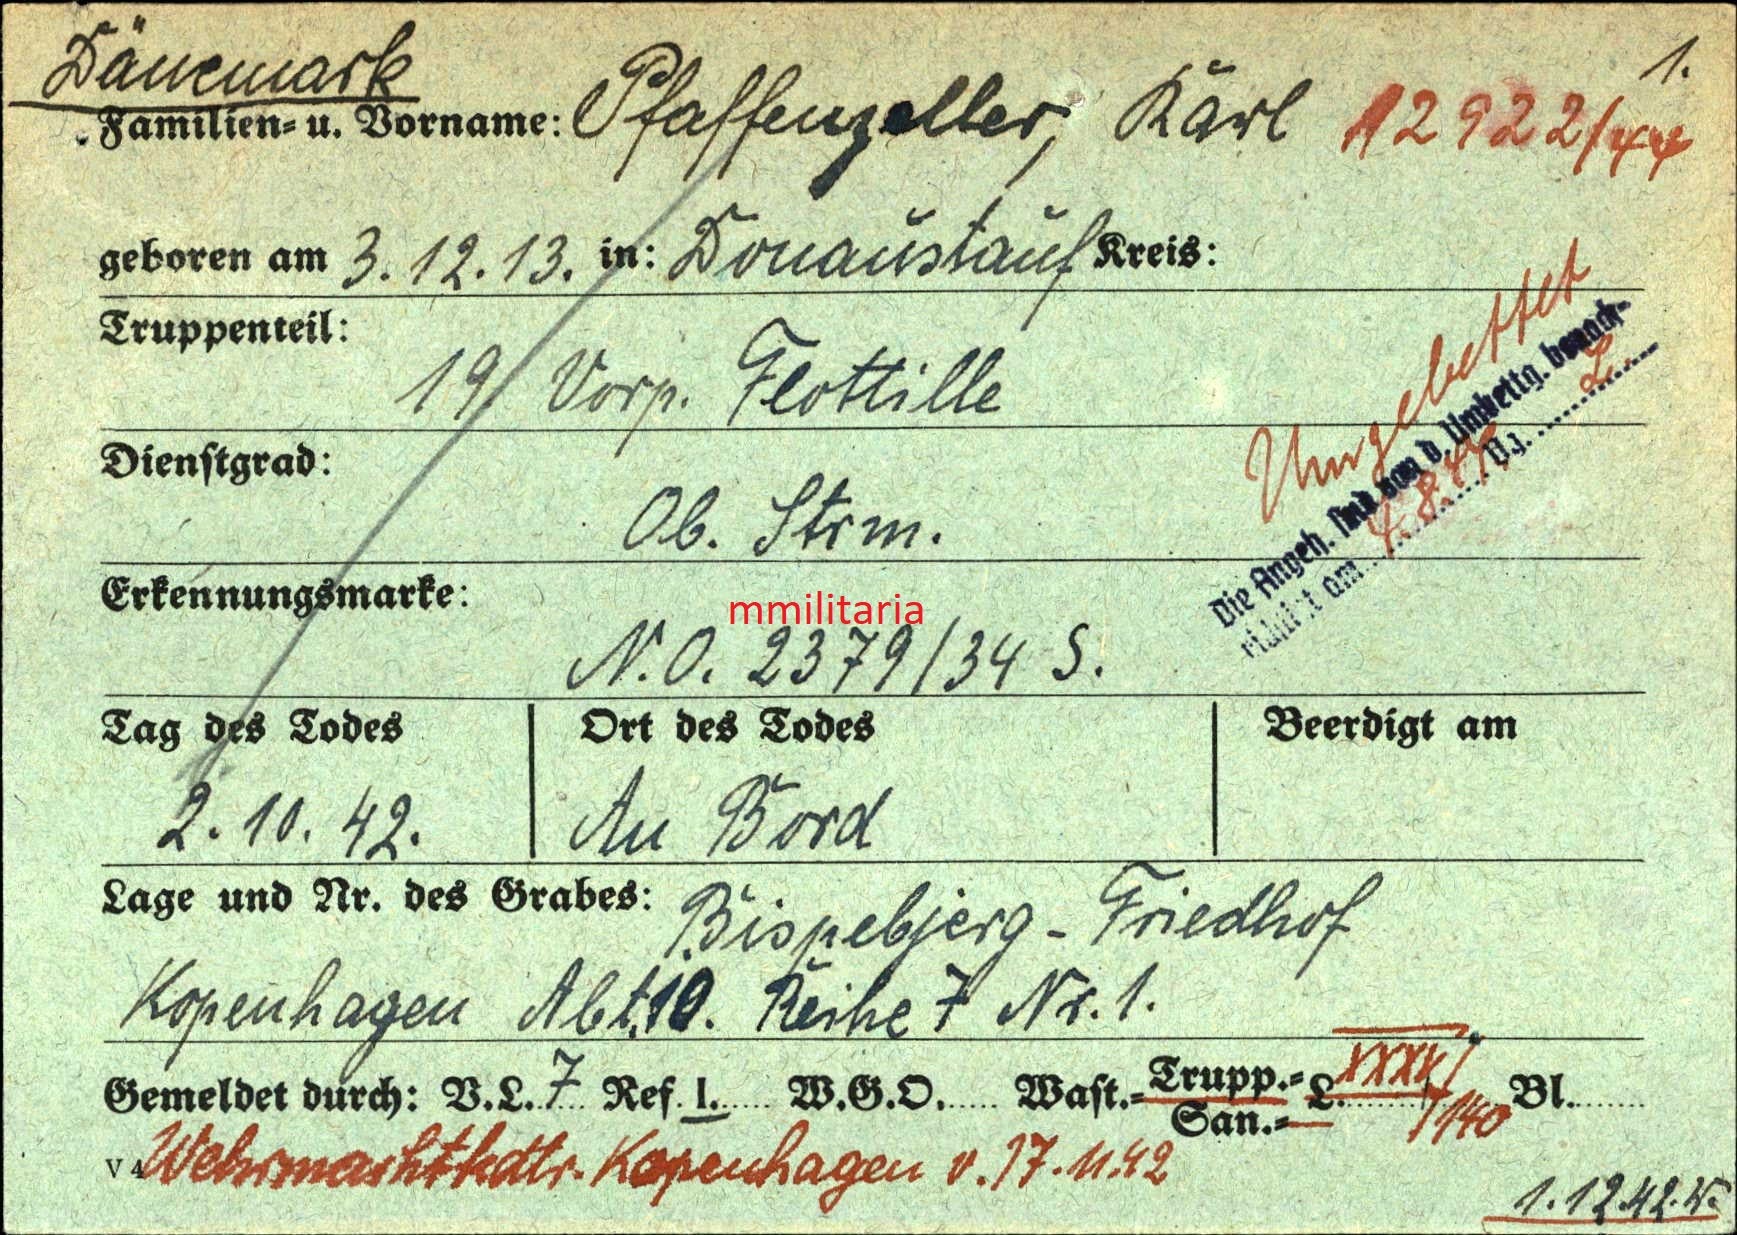 Dänemark
1.
Familien- u. Vorname: Pfaffenzeller, Karl 12922/44
geboren am 3.12.13. in: Donaustauf Kreis:
Truppenteil:
19 Vorp. Flottille
Umgebettet
Die Angeh. sind von d. Umbettg. benach-
richtigt am 4.8.44. V.z. L.
Dienstgrad:
Ob. Strm.
Erkennungsmarke:
mmilitaria
N.O. 2379/34 S.
Tag des Todes Ort des Todes Beerdigt am
2.10.42. An Bord
Lage und Nr. des Grabes: Bispebjerg-Friedhof
Kopenhagen Abt. 10. Reihe 7 Nr. 1.
Gemeldet durch: V.L. 7 Ref. I. W.G.O. Wast.- Trupp.- L. 140 Bl.
San.-
V 4 Wehrmachtkdtr. Kopenhagen v. 17.11.42
1.12.42.